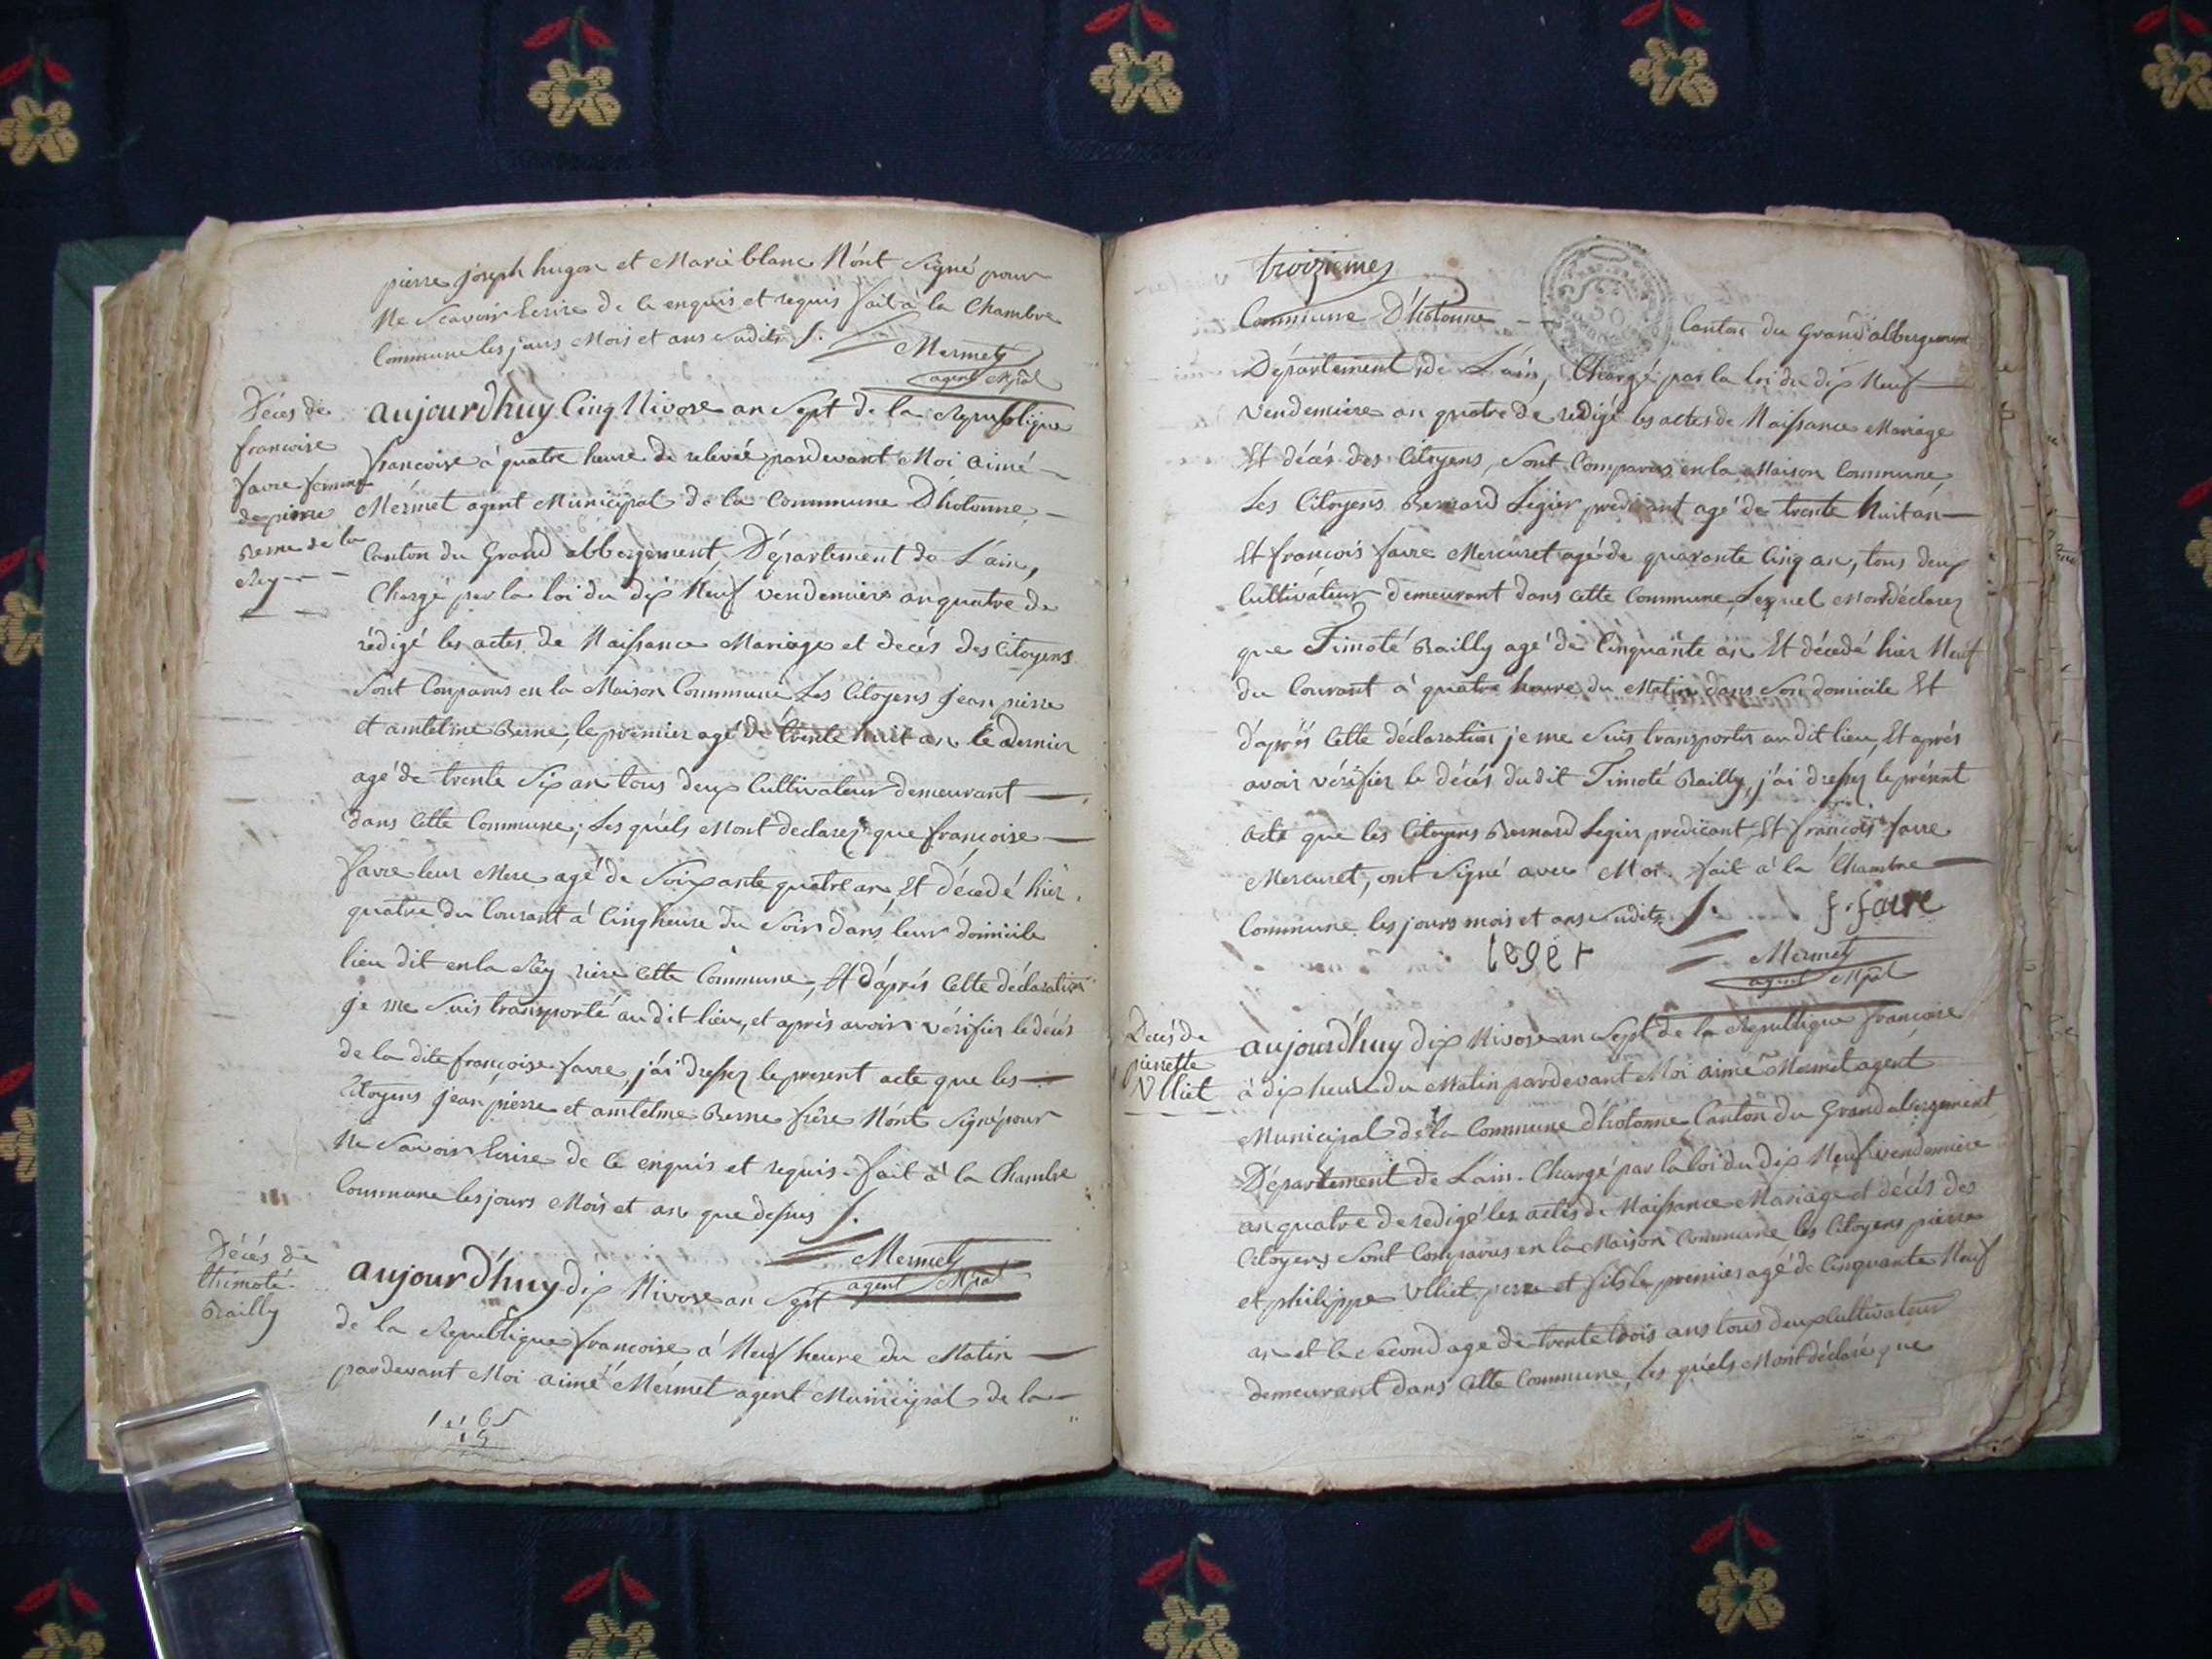 pierre joseph hugon et Marie blanc N'ónt Signé pour
Ne Scavoir Ecrire de ce enquis et requis fait à la Chambre
Commune les jours Mois et ans Sudits /.
Mermet
agent Mpal
Décés de
francoise
favre femme
de pierre
Berne de la
Rey
aujourd'huy Cinq Nivose an Sept de la Republique
francoise à quatre heure de relevée pardevant Moi aimé
Mérmet agent Municipal de la Commune D'hotonne
Canton du Grand abbergement, Département de L'ain,
Chargé par la loi du dix Neuf vendemiere an quatre de
rédigé les actes de Naissance Mariage et decés des Citoyens
Sont Comparus en la Maison Commune Les Citoyens jean pierre
et amtelme Berne, le premier agé de trente huit an le dernier
agé de trente Six an tous deux Cultivateur demeurant
dans Cette Commune, Les quéls Mont declarez que françoise
favre leur Mere agé de Soixante quatre an, Et décedé hier
quatre du Courant à Cinq heure du Soir dans leur domicile
lieu dit en la Rey riere Cette Commune, Et d'áprés Cette déclaration
je me Suis transporté au dit lieu, et aprés avoir vérifier le décés
de la dite françoise favre, j'ái dressez le present acte que les
Citoyens jean pierre et amtelme Berne frére N'ónt Signé pour
Ne Savoir Ecrire de ce enquis et requis. fait à la Chambre
Commune les jours Mois et an que dessus /.
Mermet
agent Mpal
Décés de
thimoté
Railly
aujourd'huy dix Nivose an Sept
de la Republique francoise à Neuf heure du Matin
pardevant Moi aimé Mérmet agent Municipal de la
troizieme
Commune D'hotonne
Canton du Grand abbergement
Département de L'ain, Chargé par la loi du dix Neuf
Vendemiere an quatre de redigé les actes de Naissance Mariage
Et décés des Citoyens, Sont Comparus en la Maison Commune,
Les Citoyens Bernard Legier predicant agé de trente huit an
Et francois favre Mercuret agé de quarante Cinq an, tous deux
Cultivateur demeurant dans Cette Commune, Lesquel Mont déclarez
que Timoté Railly agé de Cinquante an Et décedé hier Neuf
du Courant à quatre heure du Matin dans Son domicile Et
d'áprés Cette déclaration je me Suis transporter au dit lieu, Et aprés
avoir vérifier le décés du dit Timoté Railly, j'ái dressez le présent
acte que les Citoyens Bernard Legier predicant, Et francois favre
Mercuret, ont Signé avec Moi. fait à la Chambre
Commune les jours mois et ans Sudits /.
f. favre
leger
Mermet
agent Mpal
Decés de
pierrette
Vlliet
aujourd'huy dix Nivose an Sept de la Republique francoise
à dix heure du Matin pardevant Moi aimé Mermet agent
Municipal de la Commune d'hotonne Canton du Grand abergement
Département de L'ain. Chargé par la loi du dix Neuf vendemiere
an quatre de redigé les actes de Naissance Mariage et décés des
Citoyens Sont Comparus en la Maison Commune les Citoyens pierre
et philippe Vlliet perre et fils le premier agé de Cinquante Neuf
an et le Second age de trente trois ans tous deux Cultivateur
demeurant dans Cette Commune, les quéls Mont déclaré que